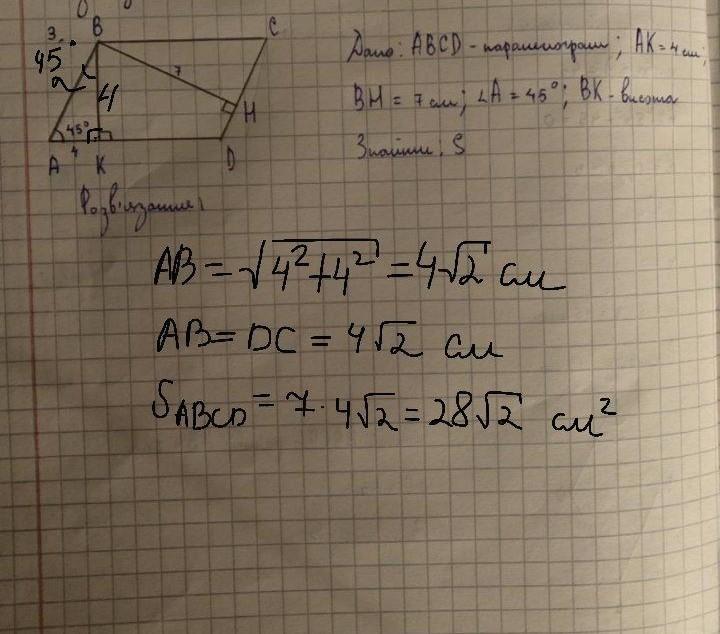 3.
B
C
45°
4
7
H
45°
A
4
K
D
Дано: ABCD - паралелограм; AK = 4 см;
BH = 7 см; ∠A = 45°; BK - висота
Знайти: S
Розв'язання:
AB = √4²+4² = 4√2 см
AB = DC = 4√2 см
S ABCD = 7 · 4√2 = 28√2 см²